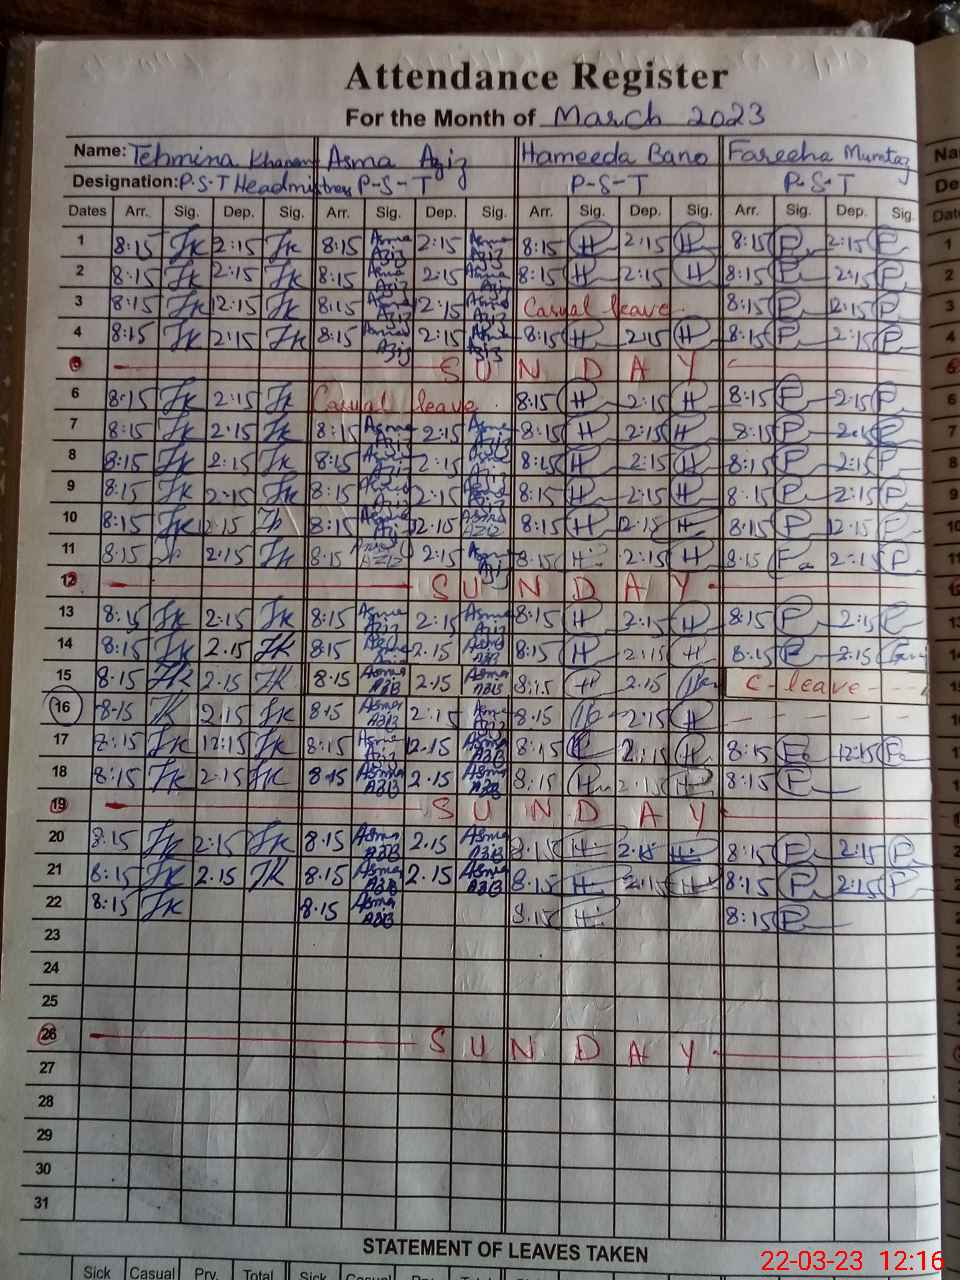 Attendance Register
For the Month of March 2023
Name: Tehmina Khanam Asma Aziz Hameeda Bano Fareeha Mumtaz
Designation: P.S.T Headmistress P-S-T P-S-T P.S.T
Dates Arr. Sig. Dep. Sig. Arr. Sig. Dep. Sig. Arr. Sig. Dep. Sig. Arr. Sig. Dep. Sig.
1 8:15 Tk 2:15 Tk 8:15 Asma Aziz 2:15 Asma Aziz 8:15 H 2:15 H 8:15 F 2:15 F
2 8:15 Tk 2:15 Tk 8:15 Asma Aziz 2:15 Asma Aziz 8:15 H 2:15 H 8:15 F 2:15 F
3 8:15 Tk 12:15 Tk 8:15 Asma Aziz 12:15 Asma Aziz Casual leave 8:15 F 12:15 F
4 8:15 Tk 2:15 Tk 8:15 Asma Aziz 2:15 Asma Aziz 8:15 H 2:15 H 8:15 F 2:15 F
5 SUNDAY
6 8:15 Tk 2:15 Tk Casual leave 8:15 H 2:15 H 8:15 F 2:15 F
7 8:15 Tk 2:15 Tk 8:15 Asma Aziz 2:15 Asma Aziz 8:15 H 2:15 H 8:15 F 2:15 F
8 8:15 Tk 2:15 Tk 8:15 Asma Aziz 2:15 Asma Aziz 8:15 H 2:15 H 8:15 F 2:15 F
9 8:15 Tk 2:15 Tk 8:15 Asma Aziz 2:15 Asma Aziz 8:15 H 2:15 H 8:15 F 2:15 F
10 8:15 Tk 12:15 Tk 8:15 Asma Aziz 12:15 Asma Aziz 8:15 H 12:15 H 8:15 F 12:15 F
11 8:15 2:15 Tk 8:15 Asma Aziz 2:15 Asma Aziz 8:15 H 2:15 H 8:15 Fa 2:15 F
12 SUNDAY
13 8:15 Tk 2:15 Tk 8:15 Asma Aziz 2:15 Asma Aziz 8:15 H 2:15 H 8:15 F 2:15 F
14 8:15 Tk 2.15 TK 8:15 Asma Aziz 2.15 Asma AZIZ 8:15 H 2:15 H 8:15 F 2:15
15 8.15 TK 2.15 TK 8.15 Asma AZIZ 2.15 Asma AZIZ 8:15 H 2.15 C-leave
16 8-15 TK 2.15 Tk 8:15 Asma AZIZ 2:15 Asma Aziz 8.15 2:15 H
17 8:15 Tk 12:15 Tk 8:15 Asma Aziz 12.15 Asma AZIZ 8:15 12:15 H 8:15 Fa 12:15 Fa
18 8:15 Tk 2:15 Tk 8.15 Asma AZIZ 2.15 Asma AZIZ 8:15 H 2:15 H 8:15 F
19 SUNDAY
20 8.15 Tk 2:15 Tk 8.15 Asma AZIZ 2.15 Asma AZIZ 8:15 H 2:15 H 8:15 F 2:15 F
21 8:15 Tk 2.15 TK 8.15 Asma AZIZ 2.15 Asma AZIZ 8:15 H 2:15 H 8:15 F 2:15 F
22 8:15 Tk 8.15 Asma AZIZ 8:15 H 8:15 F
23
24
25
26 SUNDAY
27
28
29
30
31
STATEMENT OF LEAVES TAKEN
Sick Casual Prv. Total Sick
22-03-23 12:16